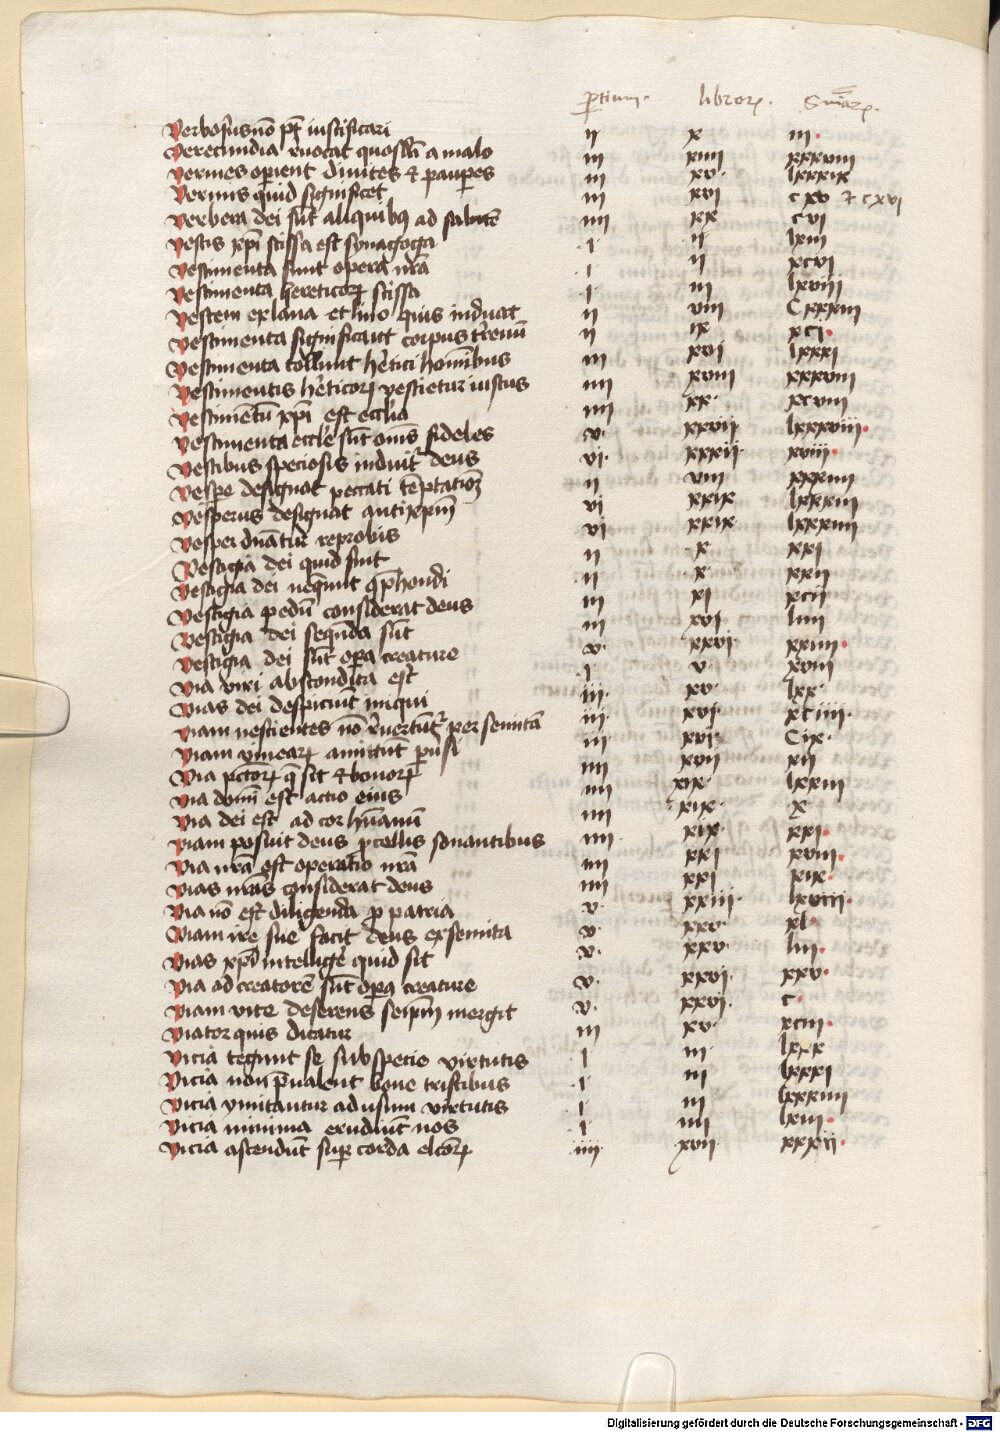 p̱tium. libroꝝ. Sma̅rꝝ.
Verbosus nō pt̄ iustificari ij x iij.
Verecundia reuocat quosdā a malo iij xiiij xxxviij
Vermes operient diuites & paup̱es iij xv. lxxxix
Vermis quid significet iij xvi cxv & cxvj
Verbera dei sūt aliquibꝯ ad salutē iiij xx cvj
Vestis xp̄i scissa est synagoga .i. ij lxiij
Vestimenta sunt opera nr̄a i ij xcvj
Vestimenta hereticoꝝ scissa i. iij lxviij
Vestem ex lana et lino quis induat ij viij Cxxxiij
Vestimenta significant corpus t̄renū ij ix xcj.
Vestimenta tollunt hētici hominibus iij xvj lxxxj
Vestimentis hēticoꝝ vestietur iustus iiij xviij xxxviij
Vestimētū xp̄i est eccl̄ia iiij xx. xcviij
Vestimenta eccl̄e sūt om̄s fideles v. xxvij lxxxviij.
Vestibus speciosis induit̄ deus vi. xxxij xviij.
Vespe designat peccati tēptationē ij viij xxxiiij
Vesperus designat antixp̄m vi xxix lxxxiij
Vesper dn̄atur reprobis vi xxix lxxxiiij
Vestigia dei quid sint ij x xxj
Vestigia dei nequnt cp̄hendi ij x. xxij
Vestigia pedū considerat deus iij xi xcij
Vestigia dei seqūda sūt iij xvj. liiij
Vestigia dei sūt opera creature v. xxvj. xxiiij.
Via viri abscondita est i v. xviij
Vias dei despiciūt iniqui iij. xv. lxx.
Viam nescientes nō reuertūt̄ per semitā iij xvj. xciiij.
Viam vinearꝝ amittūt p̱usi iij xvi. Cix.
Via pctōꝝ q̄ sit & bonorꝝ iiij xvij xij
Via domī est actio eius iiij xix. lxxiij
Via dei est ad cor hūanū iiij xix. x.
Viam posuit deus ꝓcellis sonantibus iiij xix. xxj.
Via nr̄a est operatio nr̄a iiij xxj xviij.
Vias nr̄as considerat deus iiij xxj xix.
Via nō est diligenda ꝓ patria v. xxiij. lxviij.
Viam ire sue facit deus ex semita v. xxv. xl.
Vias xp̄i intelligē quid sit v. xxv. liij.
Via ad creatorē sūt opa creature v. xxvj. xxv.
Viam vite deserens seip̄m mergit v. xxvj. c.
Viator quis dicatur iij xv. xciij.
Vicia tegunt se sub specie virtutis i iij. lxxx
Vicia non p̄ualent bone tristibus .i. iij lxxxj
Vicia vinitantur ad usum virtutis i iij lxxxiiij
Vicia minima erudiūt nos i iiij lxij.
Vicia ascendūt sup̱ corda elcōꝝ iiij. xvij xxxij.
Digitalisierung gefördert durch die Deutsche Forschungsgemeinschaft - DFG